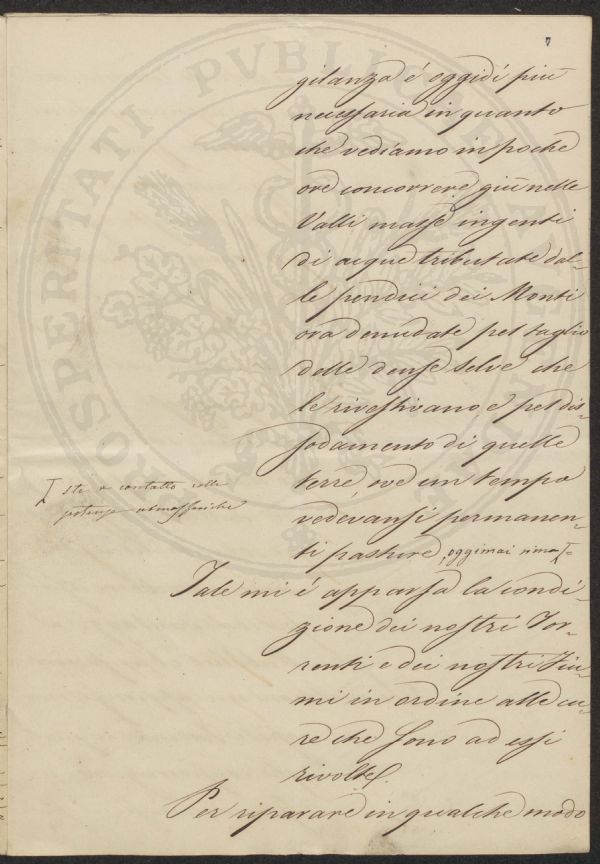 7
gilanza é oggidí piú
necessaria in quanto
che vediamo in poche
ore concorrere giú nelle
Valli masse ingenti
di acque tributate dal-
le pendici dei Monti
ora denudate pel taglio
delle dense selve che
le rivestivano e pel dis-
sodamento di quelle
terre ove un tempo
vedevansi permanen-
ti pasture, oggimai rima-
ste a contatto colle
potenze atmosferiche
Tale mi é apparsa la condi-
zione dei nostri Tor-
renti e dei nostri Fiu-
mi in ordine alle cu-
re che sono ad essi
rivolte.
Per riparare in qualche modo
PROSPERITATI PVBLICAE AVGENDAE